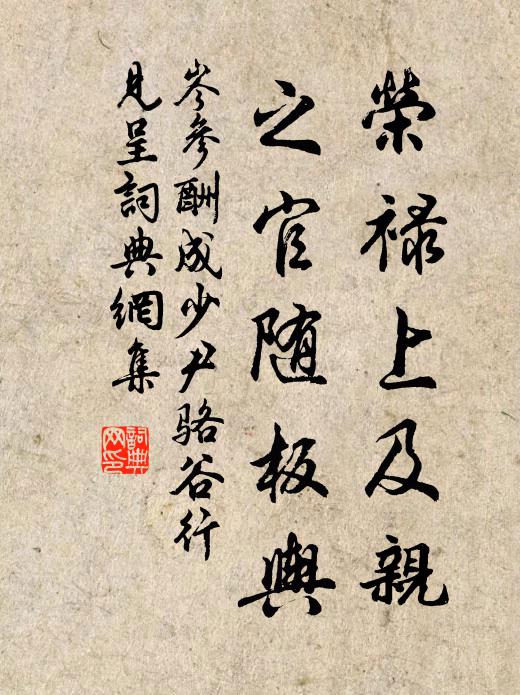 榮祿上及親
之官随板輿
岑參酬成少尹骆谷行
見呈詞典網集
詞典
网印